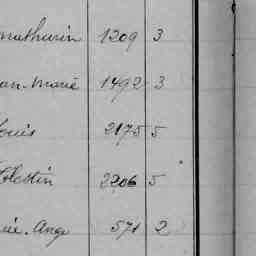 mathurin 1209 3
an-Marie 1492 3
ouis 2175 5
élestin 2206 5
rie-Ange 571 2